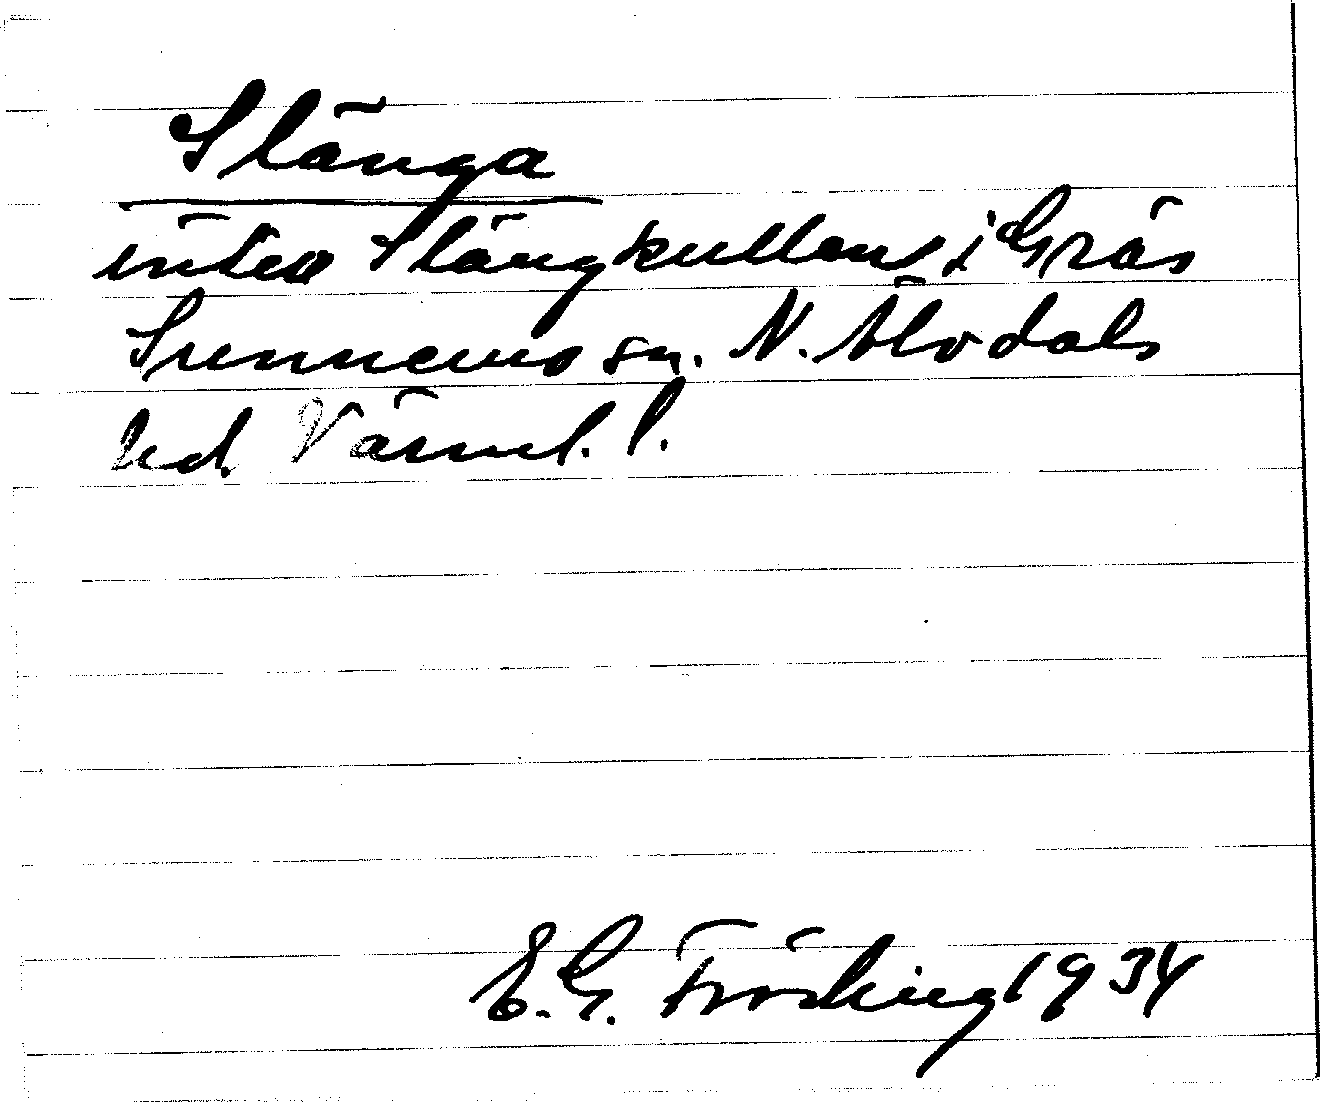 Slänga
inter Slängkullens i Gräs
Sunnemo sn. N. Älvdals
hd. Värml. l.
E. G. Fröding 1934